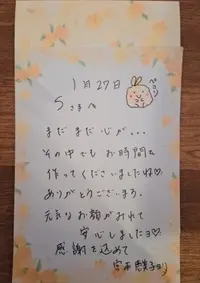 1月27日
ペコリ
Sさまへ
まだまだ心が...
その中でもお時間を
作ってくださいましたね♡
ありがとうございます。
元気なお顔がみれて
安心しましたヨ♡
感謝を込めて
恵美子より